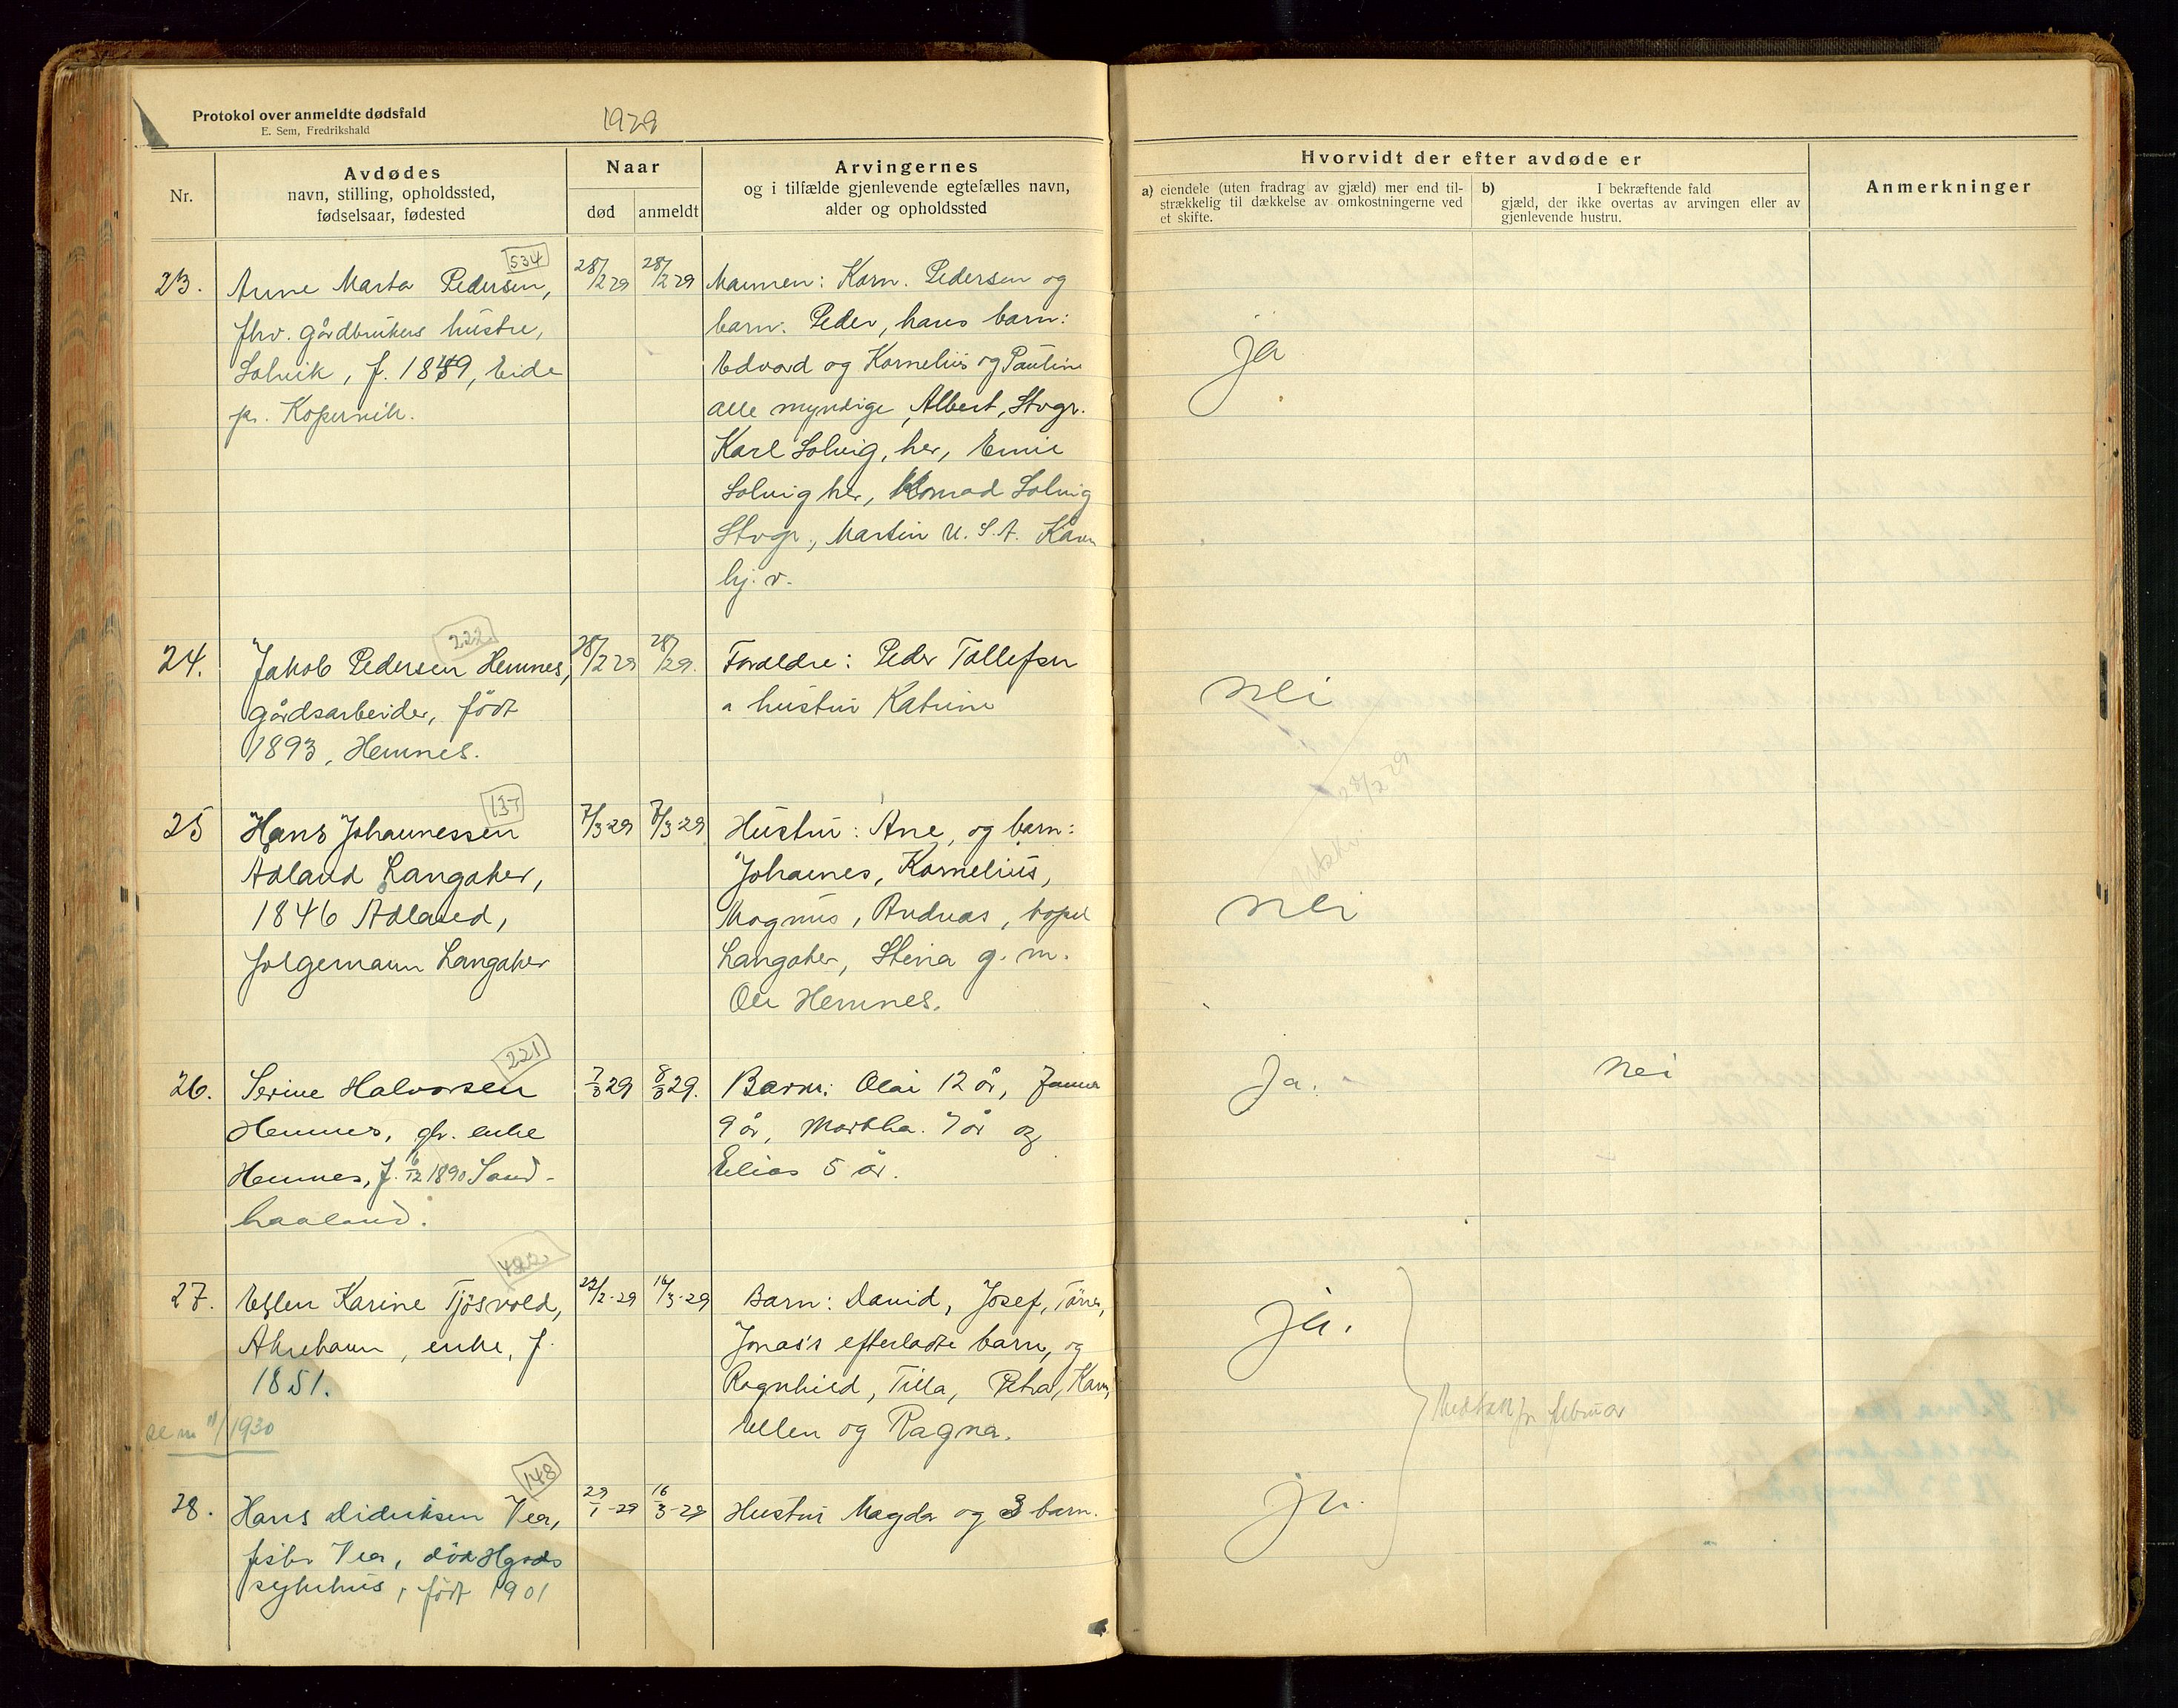 Protokol over anmeldte dødsfald
E. Sem, Fredrikshald
1929
Nr.
Avdødes
navn, stilling, opholdssted,
fødselsaar, fødested
Naar
død
anmeldt
Arvingernes
og i tilfælde gjenlevende egtefælles navn,
alder og opholdssted
Hvorvidt der efter avdøde er
a) eiendele (uten fradrag av gjæld) mer end til-
strækkelig til dækkelse av omkostningerne ved
et skifte.
b) I bekræftende fald
gjæld, der ikke overtas av arvingen eller av
gjenlevende hustru.
Anmerkninger
534
23.
Anne Marta Pedersen,
fhv. gårdbrukers hustru,
Solvik, f. 1849, Eide
pr. Kopervik.
28/2 29
28/2 29
Mannen: Korn. Pedersen og
barn: Peder, hans barn:
Edvard og Kornelius og Pauline
alle myndige, Albert, Stvgr.
Karl Solvig, her, Emil
Solvig her, Konrad Solvig
Stvgr., Martin U.S.A.
hj. v.
ja
222
24.
Jakob Pedersen Hemnes,
gårdsarbeider, født
1893, Hemnes.
28/2 29
28/29.
Foreldre: Peder Tollefsen
hustru Katrine
nei
28/2 29
137
25
Hans Johannessen
Ådland Langåker,
1846 Ådland,
folgemann Langåker
7/3-29
8/3-29
Hustru: Ane, og barn:
Johannes, Kornelius,
Magnus, Andreas, bopel
Langåker, Stina g. m.
Ole Hemnes.
nei
221
26.
Serine Halvorsen
Hemnes, gbr. enke
Hemnes, f. 6/12 1890 Sand-
haaland.
7/3 29
8/3 29.
Barn: Olai 12 år,
9 år, Martha 7 år og
Elias 5 år.
Ja.
Nei
422
27.
Ellen Karine Tjösvold,
Åkrehamn, enke, f.
1851.
22/2-29
16/3-29
Barn: David, Josef, Tönnes,
Jonas's efterladte barn, og
Ragnhild, Tilla, Petra, Karen,
Ellen og Ragna.
ja.
februar
se nr 11/1930
148
28.
Hans Didriksen Vea,
fisker Vea, död Hgsds
sykehus, födt 1901
29/1-29
16/3-29
Hustru Magda og 3 barn.
ja.